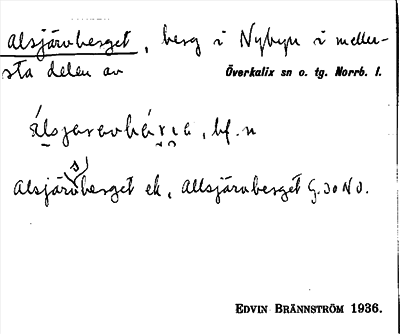 Alsjärvberget, berg i Nybyn i meller-
sta delen av Överkalix sn o. tg. Norrb. l.
bf. n
s)
Alsjärvberget ek, Allsjärvberget G. 30 NO.
EDVIN BRÄNNSTRÖM 1936.